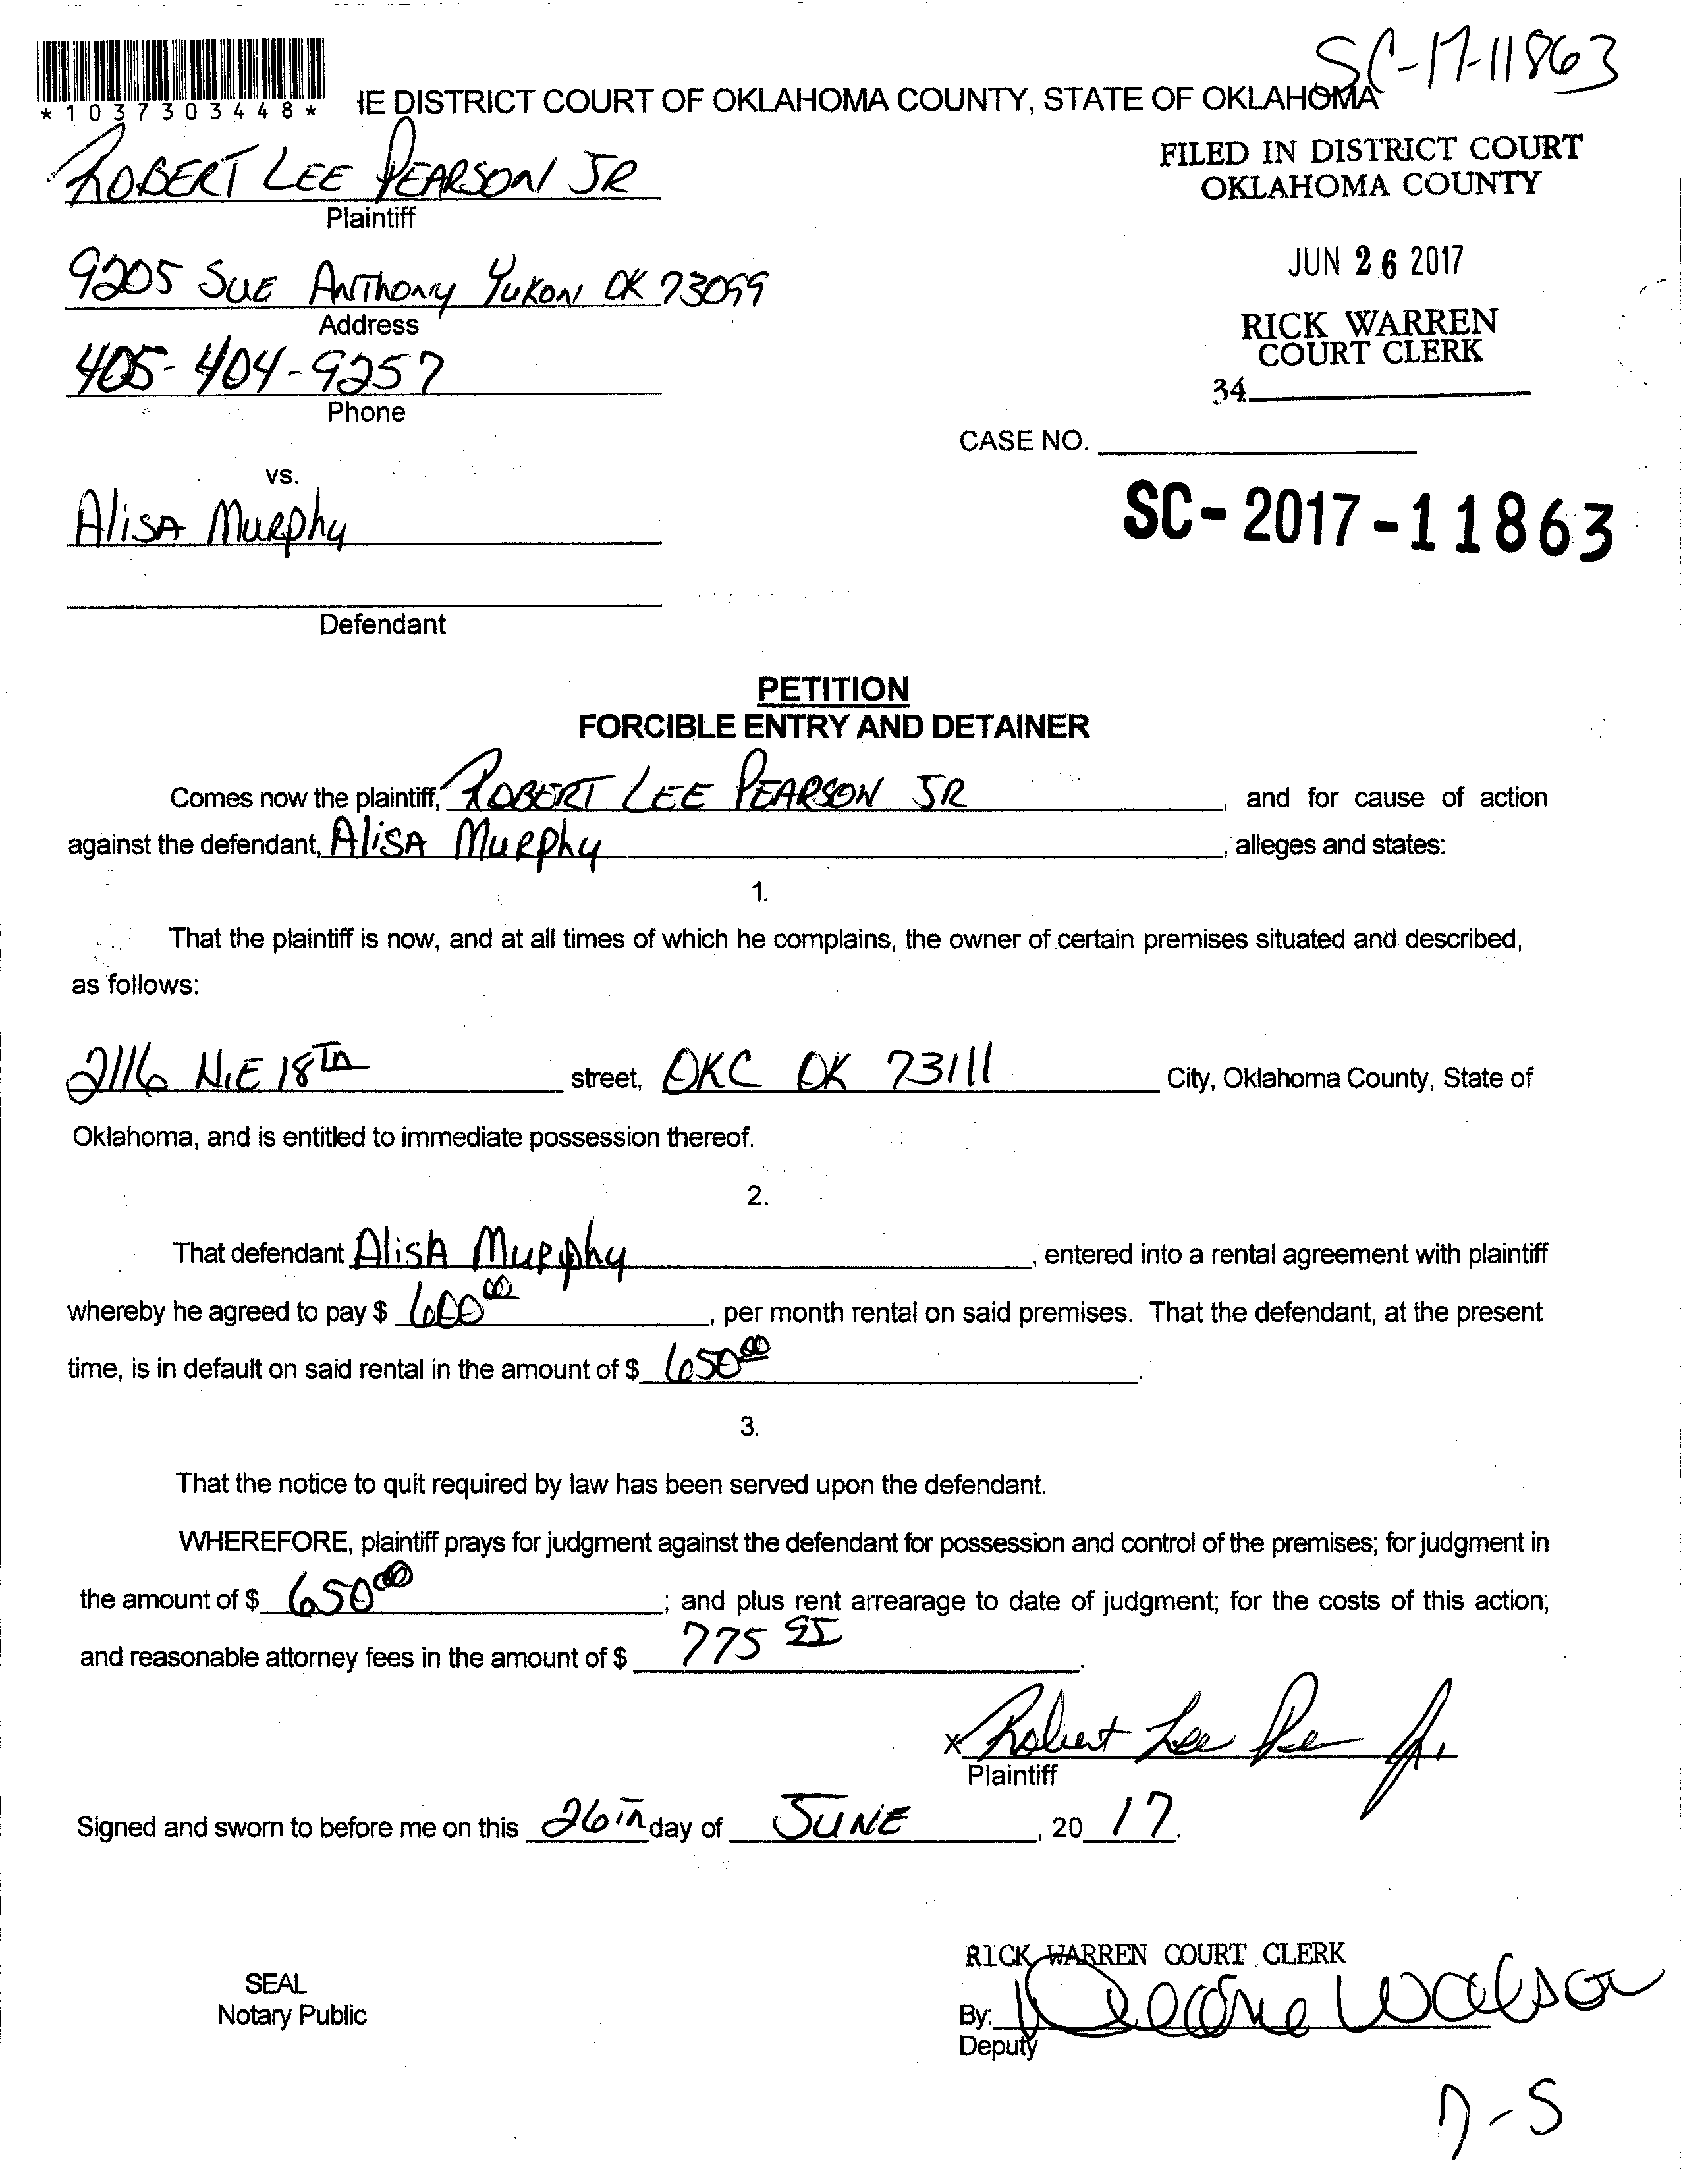 SC-17-11863
*1037303448*
IE DISTRICT COURT OF OKLAHOMA COUNTY, STATE OF OKLAHOMA
ROBERT LEE PEARSON JR
Plaintiff
FILED IN DISTRICT COURT
OKLAHOMA COUNTY
9205 SUE ANThONy YUKON OK 73099
Address
JUN 26 2017
405-404-9257
Phone
RICK WARREN
COURT CLERK
34
CASE NO.
vs.
AliSA MuRphy
SC-2017-11863
Defendant
PETITION
FORCIBLE ENTRY AND DETAINER
Comes now the plaintiff, ROBERT LEE PEARSON JR, and for cause of action
against the defendant, AliSA MuRphy, alleges and states:
1.
That the plaintiff is now, and at all times of which he complains, the owner of certain premises situated and described,
as follows:
2116 N.E 18TH street, OKC OK 73111 City, Oklahoma County, State of
Oklahoma, and is entitled to immediate possession thereof.
2.
That defendant AlisA MuRphy, entered into a rental agreement with plaintiff
whereby he agreed to pay $ 600 00, per month rental on said premises. That the defendant, at the present
time, is in default on said rental in the amount of $ 650 00.
3.
That the notice to quit required by law has been served upon the defendant.
WHEREFORE, plaintiff prays for judgment against the defendant for possession and control of the premises; for judgment in
the amount of $ 650 00; and plus rent arrearage to date of judgment; for the costs of this action;
and reasonable attorney fees in the amount of $ 775.
x Robert Lee Pe Jr.
Plaintiff
Signed and sworn to before me on this 26TH day of JUNE, 20 17.
RICK WARREN COURT CLERK
SEAL
Notary Public
By:
Deputy
7-5